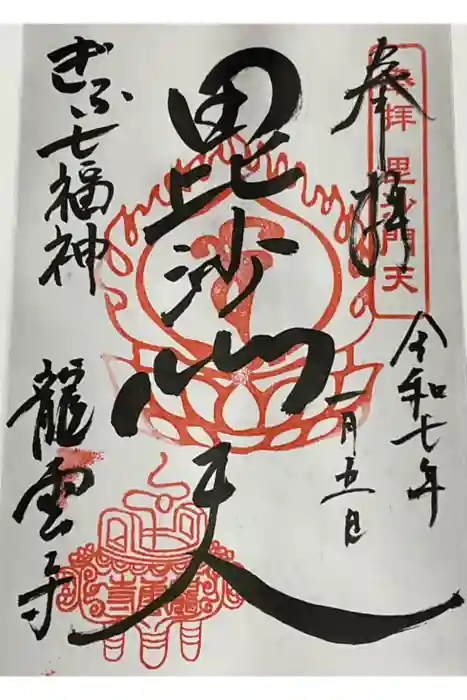 奉拝
無拝 毘沙門天
令和七年
一月五日
毘沙門天
ぎふ七福神
龍雲寺